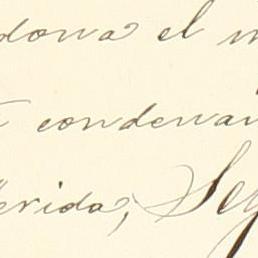 dona el
condenan
erida, Seg